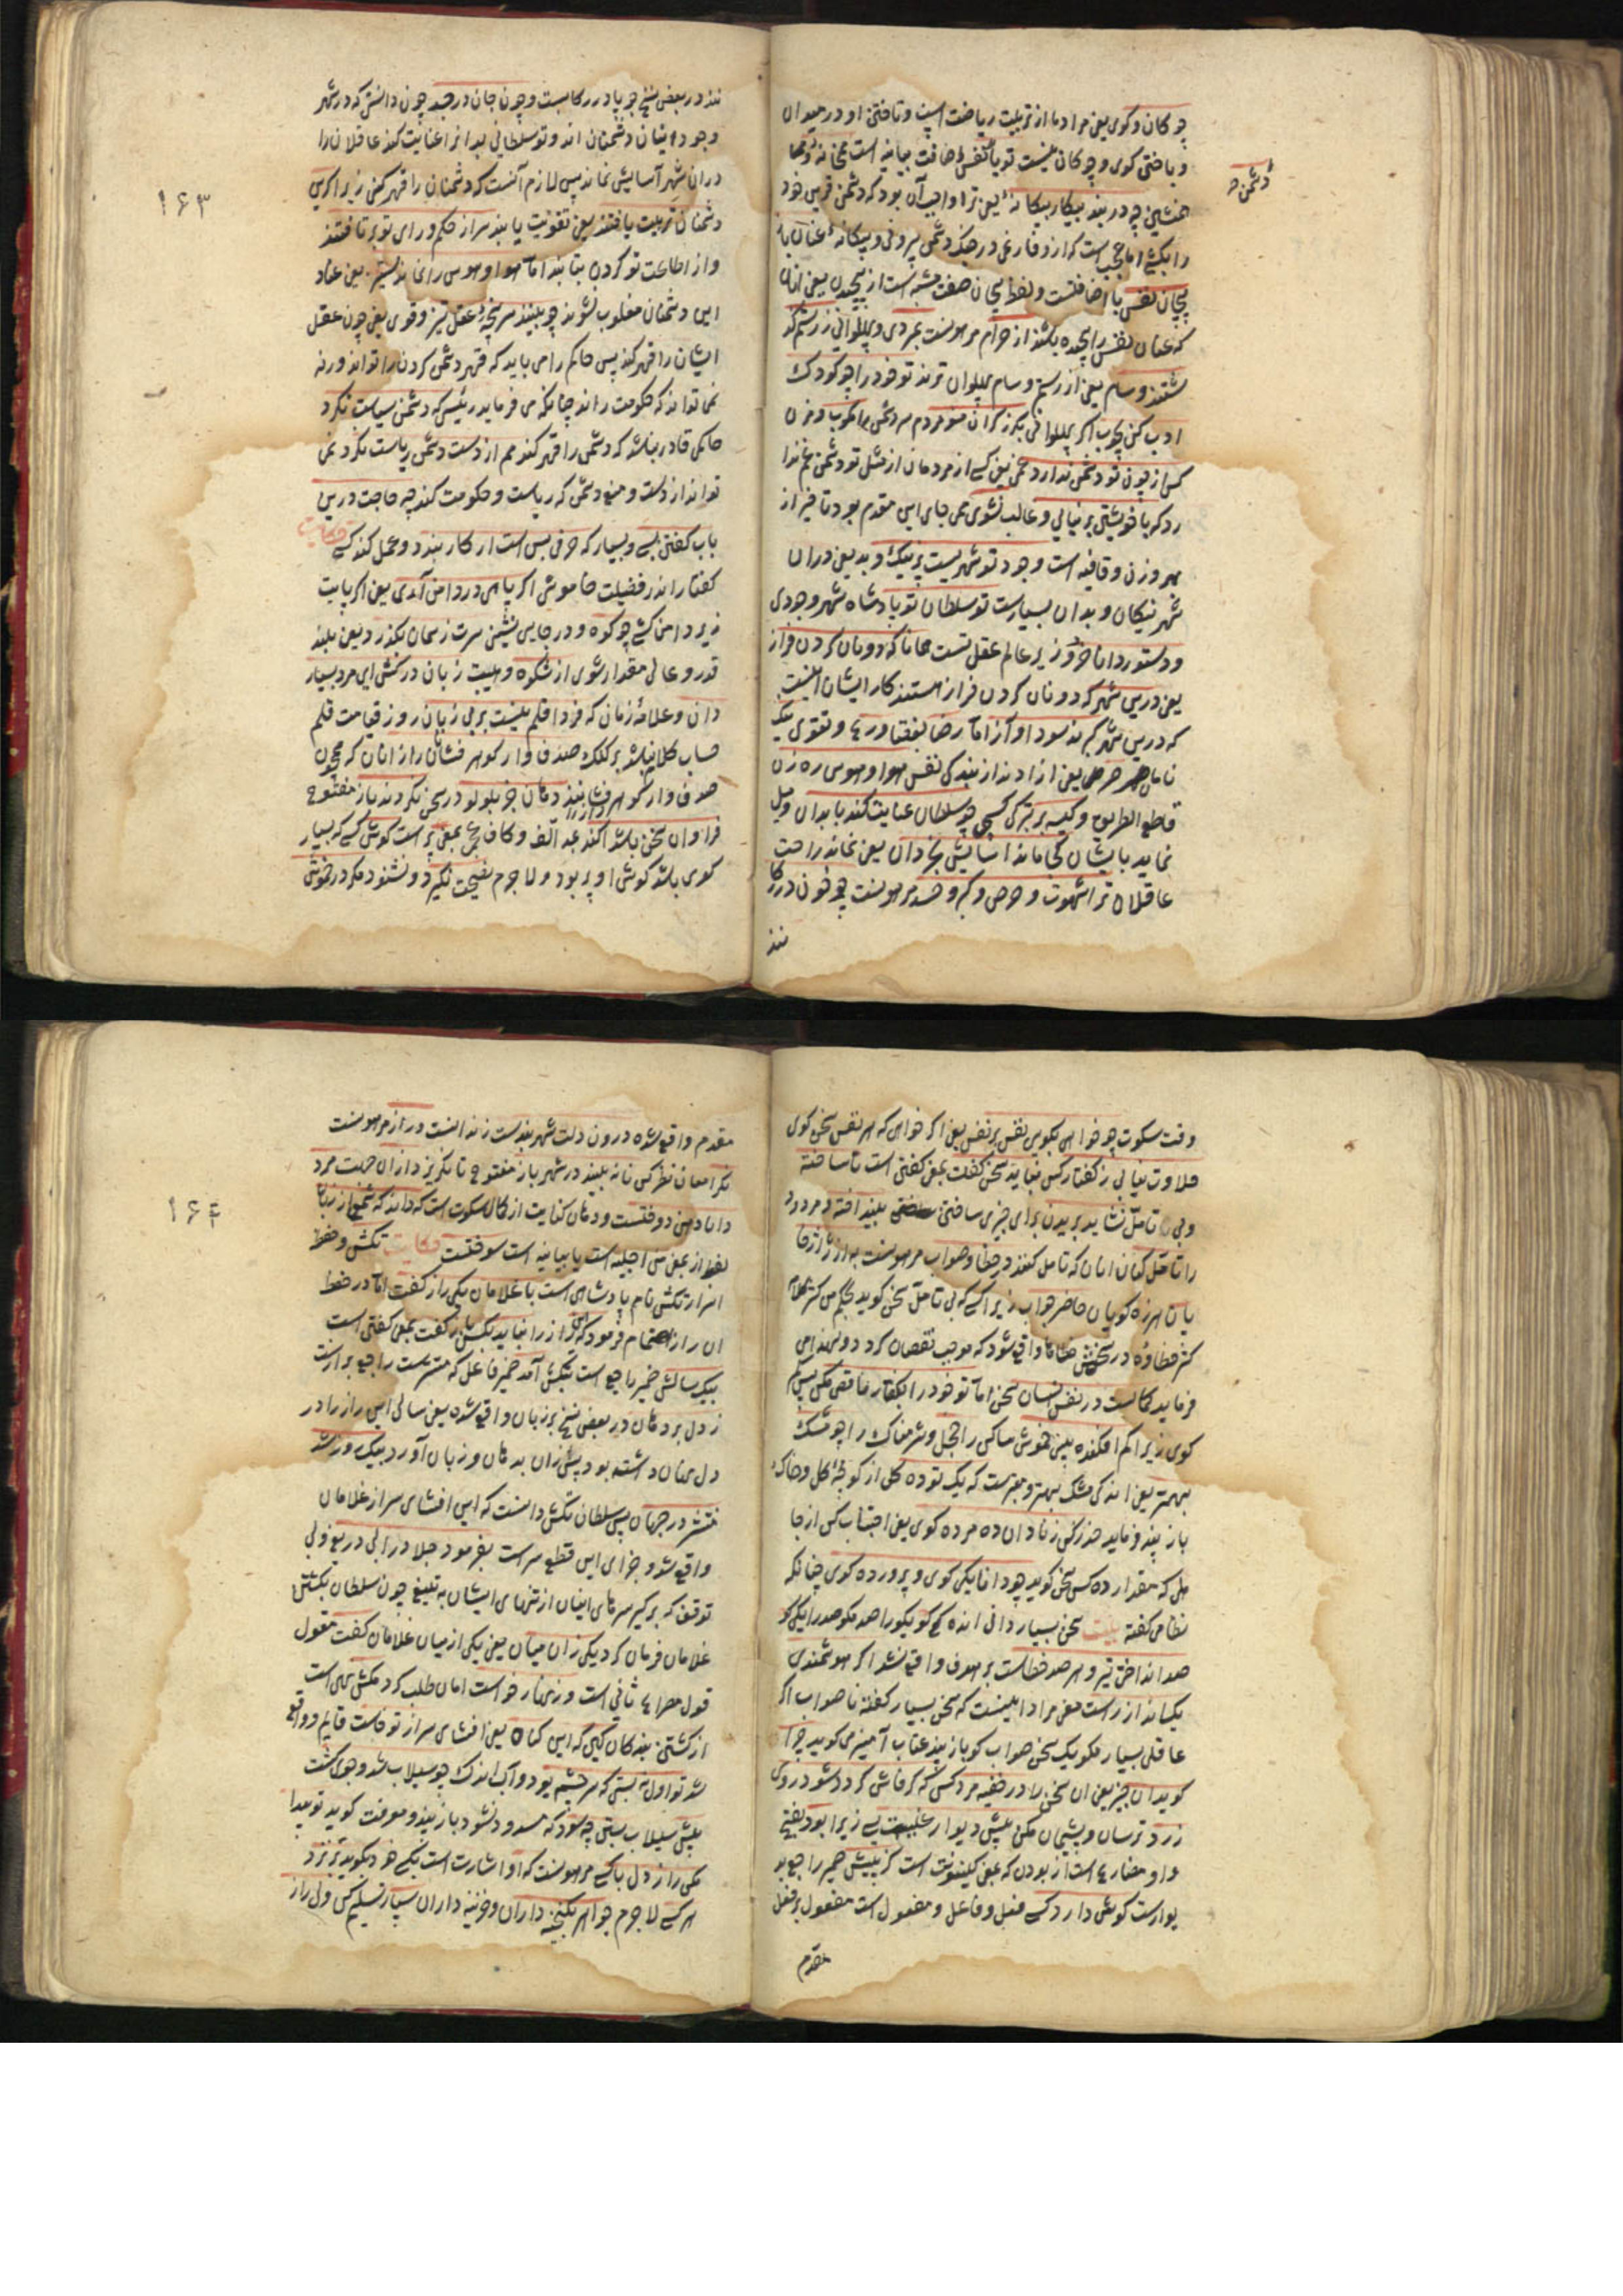 چوکان و کوی یعنی مراد ما از تربیت ریاضت است و تافتن او در میدان
و باختن کوی و چوکان نیست تو با نفس اضافت بیانیه است
همنشین چه در بند پیکار بیکانهٔ یعنی ترا واجب آن بود که دشمن قرین خود
را بکشی اما عجب است که ازو فارغی در جنک دشمن بیرونی و بیکانهٔ عنان باز
پیچان نفس با اضافتست و لفظ پیچان صفت مشبه است از پیچیدن یعنی آنان
که عنان نفس را پیچیده بکشند از حرام مر هوست بمردی و پهلوانی ز رستم که
شتند و سام یعنی از رستم و سام پهلوان ترند تو خود را چو کودک
ادب کن بچوب اکر پهلوانی بکرز کران مغز مردم سر دشمن مکوب و مزن
کس از چون تو دشمن ندارد غمی یعنی کسی از مردمان از مثل تو دشمن غم ندا
رد که با خویشتن برنیایی و غالب نشوی همی جای این مقدم بود تاخیر از
بهر وزن و قافیه است وجود تو شهریست پر نیک و بد یعنی در آن
شهر نیکان و بدان بسیارست تو سلطان تو پادشاه شهر وجودی
و دستور دانا خرد وزیر عالم عقل تست همانا که دونان کردن فراز
یعنی درین شهر که دونان کردن فراز هستند کار ایشان اینست
که درین شهر کبر ند سودا و آز اما رضا بفقتا ورع و تقوی نیک
نامان حر یعنی ازادند از بندکی نفس هوا و هوس ره زن
قاطع الطریق و کیسه بر بترکی کسبی چو سلطان عنایت کند با بدان میل
نماید با ایشان کجا ماند آسایش بخردان یعنی نماند راحت
عاقلان ترا شهوت و حرص و کبر و حسد مر هوست چو خون در رکا
نند
دشمن
نند در بعضی نسخ چو پا در رکابست و چون جان در جسد چون دانستی که در شهر
وجود اینان دشمنان اند و تو سلطانی بدانرا عنایت کند عاقلان را
در ان شهر آسایش نماند پس لازم آنست که دشمنان را قهر کنی زیرا کرین
دشمنان تربیت یافتند یعنی تقویت یابند سر از حکم و رای تو بر تافتند
و از اطاعت تو کردن بتابند اما هوا و هوس را نماند ستیز یعنی عناد
این دشمنان مغلوب شوند چو بینند سر پنجهٔ عقل تیز و قوی یعنی چون عقل
ایشان را قهر کند پس حاکم را می باید که قهر دشمن کردن را تواند ورنه
نمی تواند که حکومت راند چنانکه می فرماید رئیسی که دشمن سیاست نکرد
حاکمی قادر نباشد که دشمن را قهر کند هم از دست دشمن ریاست نکرد نمی
تواند از دست و منع دشمن که ریاست و حکومت کند چه حاجت درین
باب کفتن بسی و بسیار که حرفی بس است ار کار بندد و عمل کند کسی حکایت
کفتار اندر فضیلت خاموشی اکر پای در دامن آری یعنی اکر پایت
زیر دامن کشی چو کوه و در جایی نشینی سرت ز آسمان بکذرد یعنی بلند
قدر و عالی مقدار شوی از شکوه و هیبت زبان در کش ای مرد بسیار
دان و علامهٔ زمان که فردا قلم نیست بر بی زبان روز قیامت قلم
حساب کلا نباشد بر کنک صدف وار کوهر فشانان راز انان که همچون
صدف وار کوهر فشانند دهان جز بلولو در سخن نکردند باز مفتوح
فراوان سخن باشد اکنده بمد الف و کاف عجمی بمعنی پر است کوش کسی که بسیار
کوی باشد کوش او پر بود و لاجرم نصیحت نکیرد و نشنود مکر در خموشی
۱۶۳
وقت سکوت چو خواهی بکویی نفس بر نفس یعنی اکر خواهی که هر نفس سخن کوی
حلاوت نیابی ز کفتار کس نباید سخن کفت بمعنی کفتن است ناساخته
و بی تامل نشاید بریدن برای چیزی ساختن بینداخته و مردود
را تامل کنان انان که تامل کنند در خطا و صواب مر هوست به از ژاژخا
یان هرزه کویان حاضر جواب زیرا کسی که بی تامل سخن کوید بحکم من کثر کلامه
کثر خطاؤه در سخنش خطاها واقع شود که موجب نقصان کردد و لهذا می
فرماید کمالست در نفس انسان سخن اما تو خود را بکفتار ناقص مکن پس کم
کوی زیرا کم افکنده یعنی خموش ساکن را خجل و شرمناک را جو مشک
بهتر یعنی اندکی مشک بهتر و معتبرست که یک توده کل از کوتهٔ کل و خاک
باز پند و ماید حذر کن ز نادان ده مرده کوی یعنی اجتناب کن از جا
هل که بمقدار ده کس سخن کوید چو دانا یکی کوی و پرورده کوی چنانکه
نظامی کفته بیت سخن بسیار دانی اندکی کو یکی را صد مکو صد را یکی کو
صد انداختی تیر و هر صد خطاست بر هدف واقع نشد اکر هوشمندی
یک انداز راست معنی مراد اینست که سخن بسیار کفتهٔ ناصواب اکر
عاقلی بسیار مکو یک سخن صواب کو باز پند عتاب آمیز می کوید چرا
کوید ان چیز یعنی ان سخن را در خفیه مرد کسی که کر فاش کردد شود روی
زرد ترسان و پشیمان مکن پیش دیوار غیبت بسی زیرا بود بفتح
واو مضارع است از بودن که بمعنی کینونت است کز پیشش ضمیر راجع بد
یوارست کوش دارد کسی فعل و فاعل و مفعول است مفعول بر فعل
مقدم
مقدم واقع شده درون دلت شهر بندست زندانست و راز مر هوست
نکر امعان نظر کن تا نه بیند در شهر باز مفتوح تا نکریزد از ان جهت مرد
دانا دهن دوختست و دهان کنایت از کمال سکوت است که داند که شمع از زبان
لفظ از بمعنی من اجلیه است یا بیانیه است سوختست حکایت تکش و حفظ
اسرار تکش نام پادشاهی است با غلامان یکی راز کفت اما در حفظ
ان راز اهتمام فرمود که این راز را نباید بکس باز کفت بمعنی کفتن است
بیک سالش ضمیر راجع است بتکش آمد ضمیر فاعل که مستترست راجع بر ازست
ز دل بر دهان در بعضی نسخ بر زبان واقع شده یعنی سالی این راز را در
دل نهان داشته بود پس زان بدهان و زبان آورد بیک روز شد
منتشر در جهان پس سلطان تکش دانست که این افشای سر از غلامان
واقع شد و جزای این قطع سرست بفرمود جلاد را بی دریغ و بی
توقف که بر کیر سرهای اینان از تنهای ایشان به تیغ چون سلطان تکش
غلامان فرمان کرد یکی زان میان یعنی یکی از میان غلامان کفت مقول
قول مصراع ثانی است و زنهار خواست امان طلب کرد مکش نهی است
از کشتن بندکان کین که این کناه یعنی افشای سر از تو خاست قایم و واقع
شد تو اول نبستی که سر چشمه بود و آب اندک چو سیلاب شد و جوی کشت
پیش سیلاب بستن چه سود که مسدود نشود باز پند و معرفت کوید تو پیدا
مکن راز دل با کسی مر هوست که او اشارت است بکسی خود بکوید بر هر
هر کسی لاجرم جواهر بکنجینه داران و خزینه داران سپار تسلیم کن ولی راز
۱۶۴